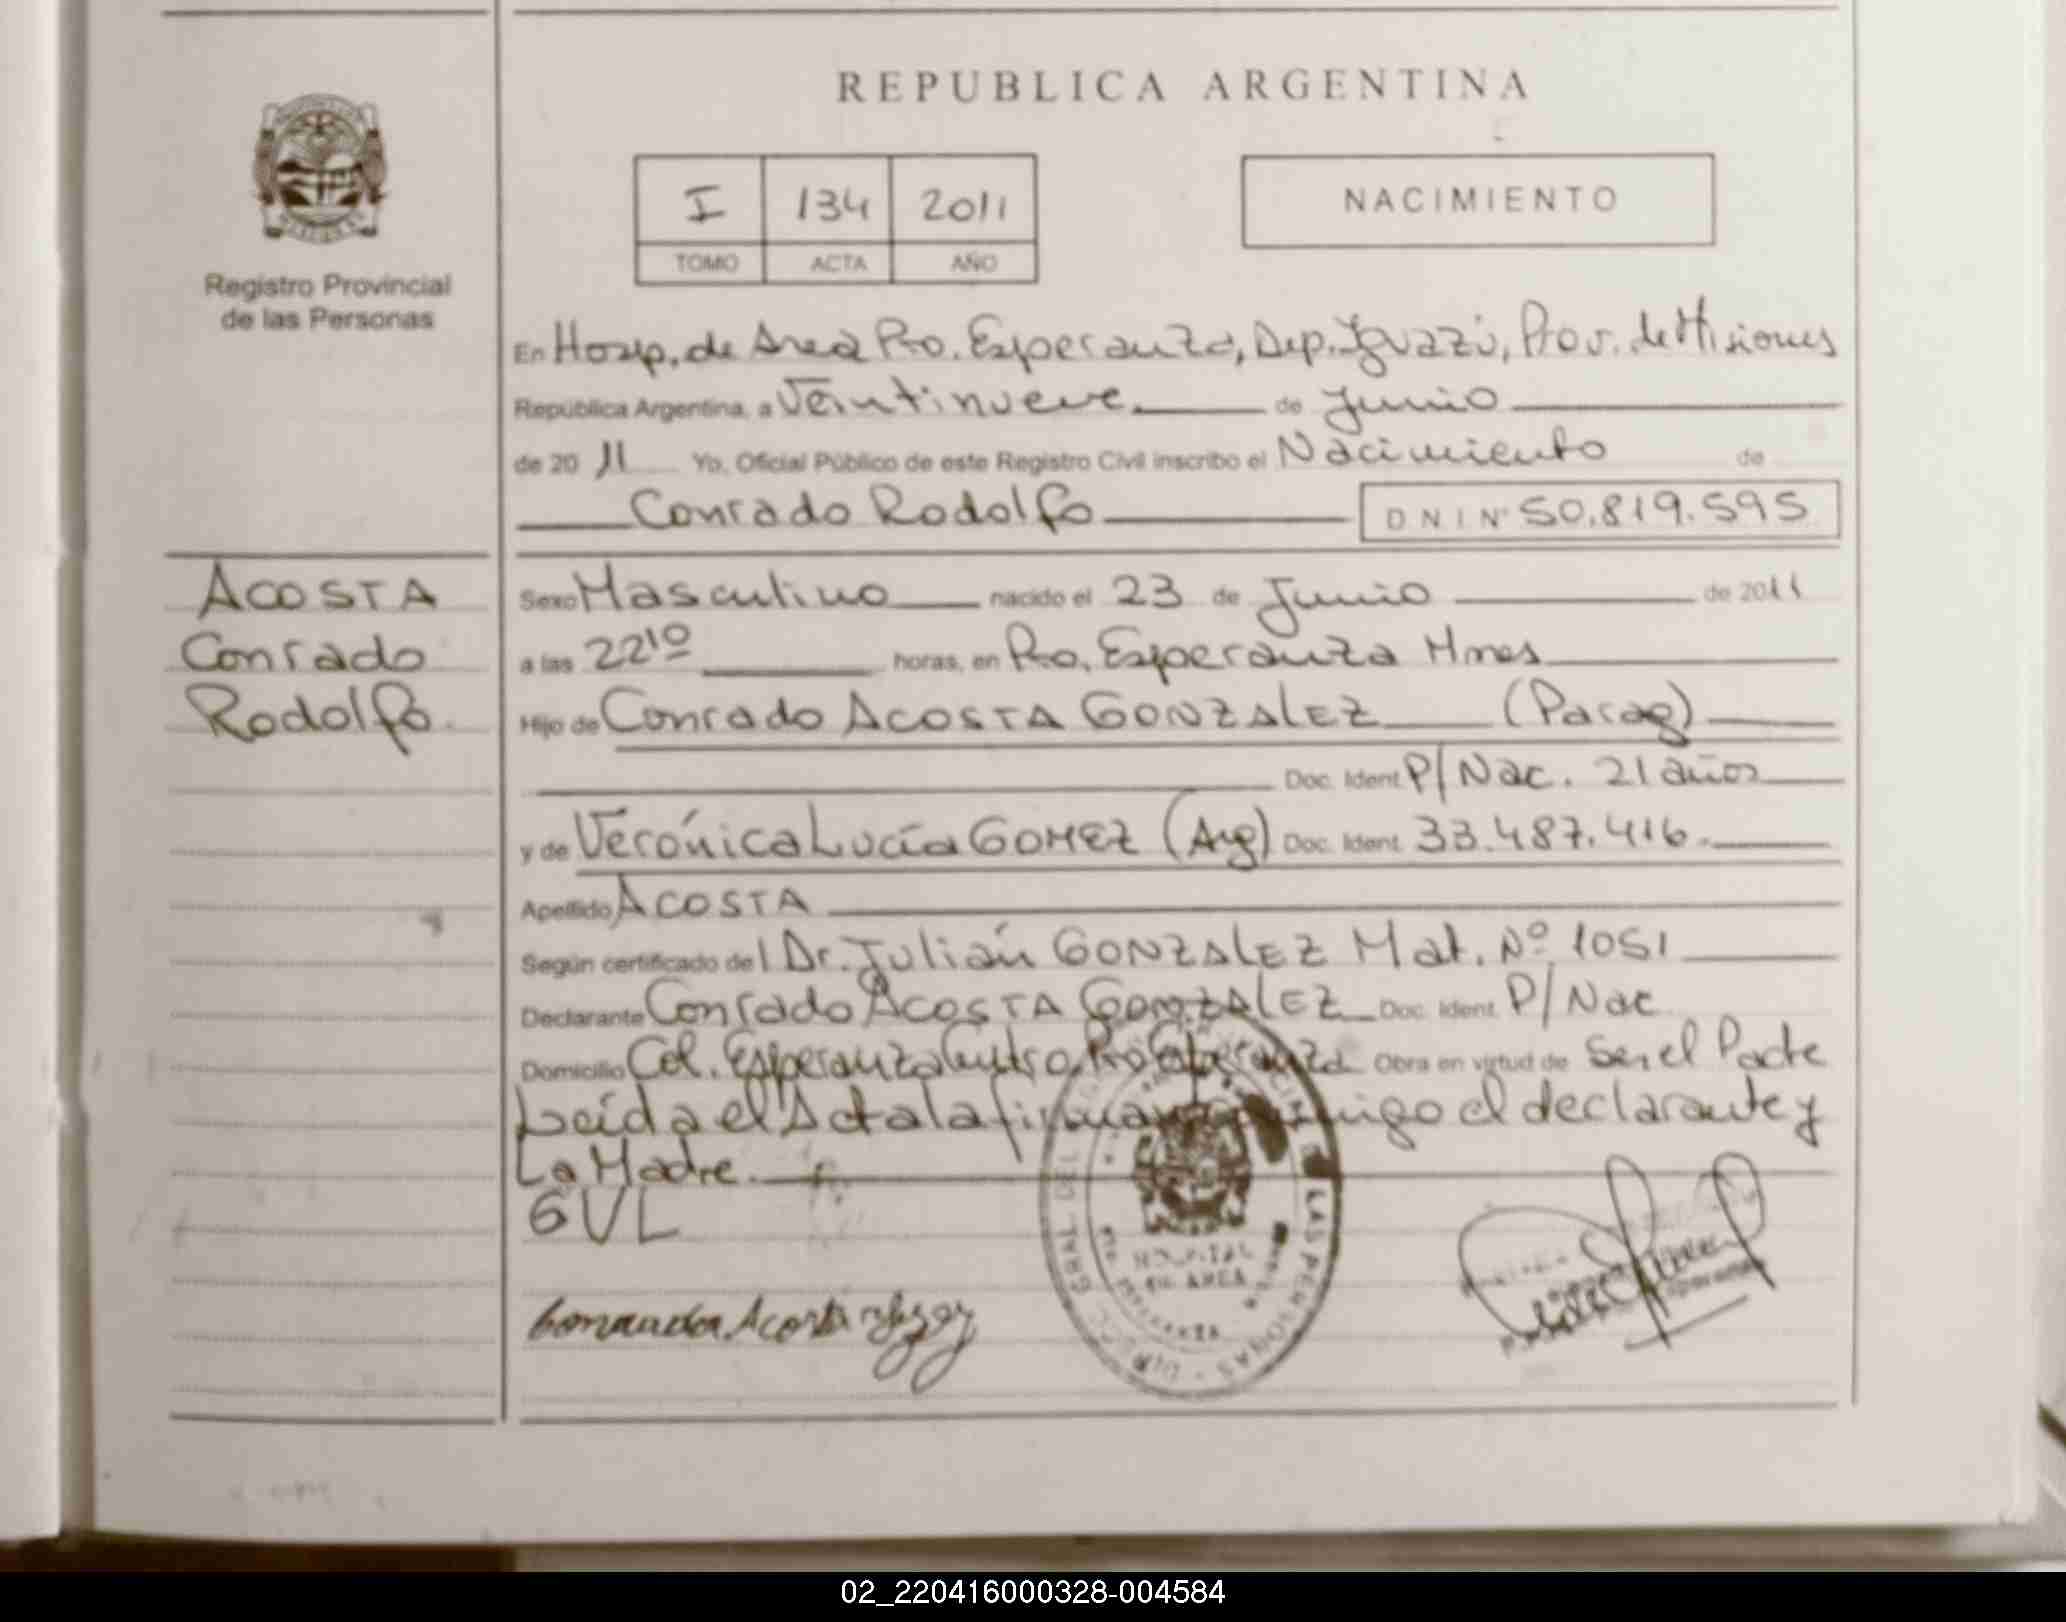 REPUBLICA ARGENTINA
I 134 2011
TOMO ACTA AÑO
NACIMIENTO
Registro Provincial
de las Personas
En Hosp. de Area Pto. Esperanza, Dep. Iguazú, Prov. de Misiones
República Argentina, a Veintinueve de Junio
de 2011 Yo, Oficial Público de este Registro Civil inscribo el Nacimiento de
Conrado Rodolfo DNI Nº 50.819.595
ACOSTA
Conrado
Rodolfo
Sexo Masculino nacido el 23 de Junio de 2011
a las 22¹⁰ horas, en Pto. Esperanza Mnes
Hijo de Conrado ACOSTA GONZALEZ (Parag)
Doc. Ident. P/Nac. 21 años
y de Verónica Lucía GOMEZ (Arg) Doc. Ident. 33.487.416.
Apellido ACOSTA
Según certificado del Dr. Julián GONZALEZ Mat. Nº 1051
Declarante Conrado ACOSTA GONZALEZ Doc. Ident. P/Nac
Domicilio Col. Esperanza Centro, Pto Esperanza Obra en virtud de Ser el Padre
Leída el Acta la firman conmigo el declarante y
La Madre.
GVL
HOSPITAL
DE AREA
LAS PERSONAS
GRAL DEL
Acosta
02_220416000328-004584